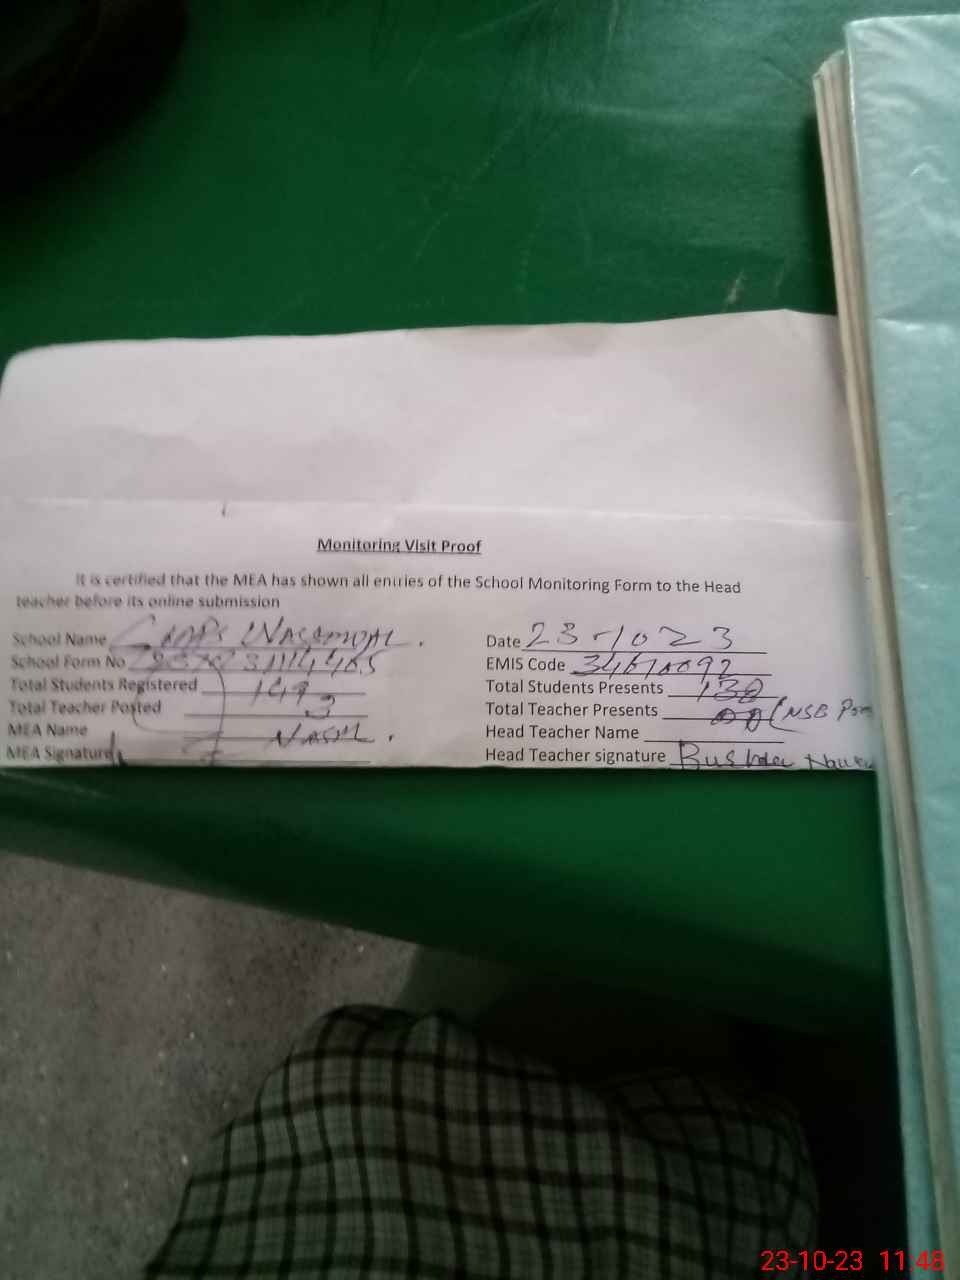 Monitoring Visit Proof
It is certified that the MEA has shown all entries of the School Monitoring Form to the Head
teacher before its online submission
School Name
Date 23-1023
School Form No
EMIS Code 34610092
Total Students Registered 149
Total Students Presents 130
Total Teacher Posted 3
Total Teacher Presents 00 (NSB
MEA Name
Head Teacher Name
MEA Signature
Head Teacher signature Bushra
23-10-23 11:48